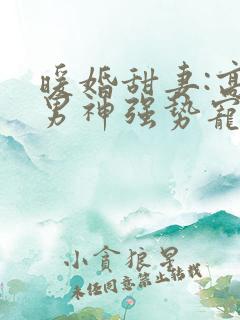 暖婚甜妻:高
男神强势宠
小贪狼星
未经同意禁止转载